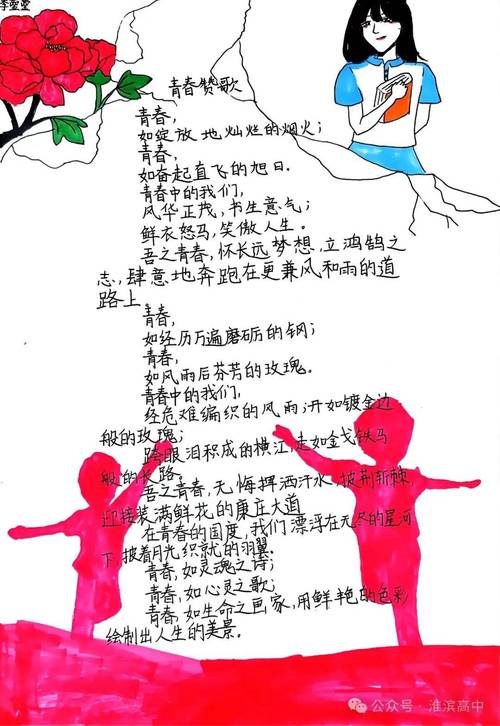 李雯雯
青春赞歌
青春,
如绽放地灿烂的烟火;
青春,
如奋起直飞的旭日.
青春中的我们,
风华正茂,书生意气;
鲜衣怒马,笑傲人生。
吾之青春,怀长远梦想,立鸿鹄之
志,肆意地奔跑在更兼风和雨的道
路上
青春,
如经历万遍磨砺的钢;
青春,
如风雨后芬芳的玫瑰。
青春中的我们,
经危难编织的风雨;开如镀金边
般的玫瑰;
跨眼泪积成的横江,走如金戈铁马
般的长路。
吾之青春,无悔挥洒汗水,披荆斩棘,
迎接装满鲜花的康庄大道
在青春的国度,我们漂浮在无尽的星河
下,披着月光织就的羽翼.
青春,如灵魂之诗;
青春,如心灵之歌;
青春,如生命之画家,用鲜艳的色彩
绘制出人生的美景。
公众号·淮滨高中